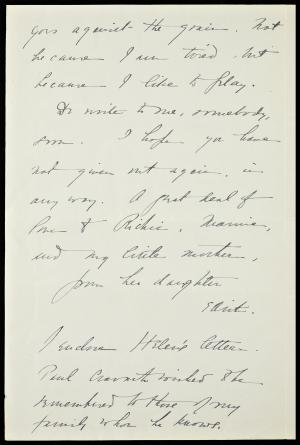 goes against the grain. Not
because I am tired, but
because I like to play.
Do write to me, somebody,
soon. I hope you have
not given out again, in
any way. A great deal of
love to Richie, Mamma,
and my little mother,
from her daughter
Edit.
I endorse Helen's letter.
Paul Cravath wished to be
remembered to those of my
family whom he knows.